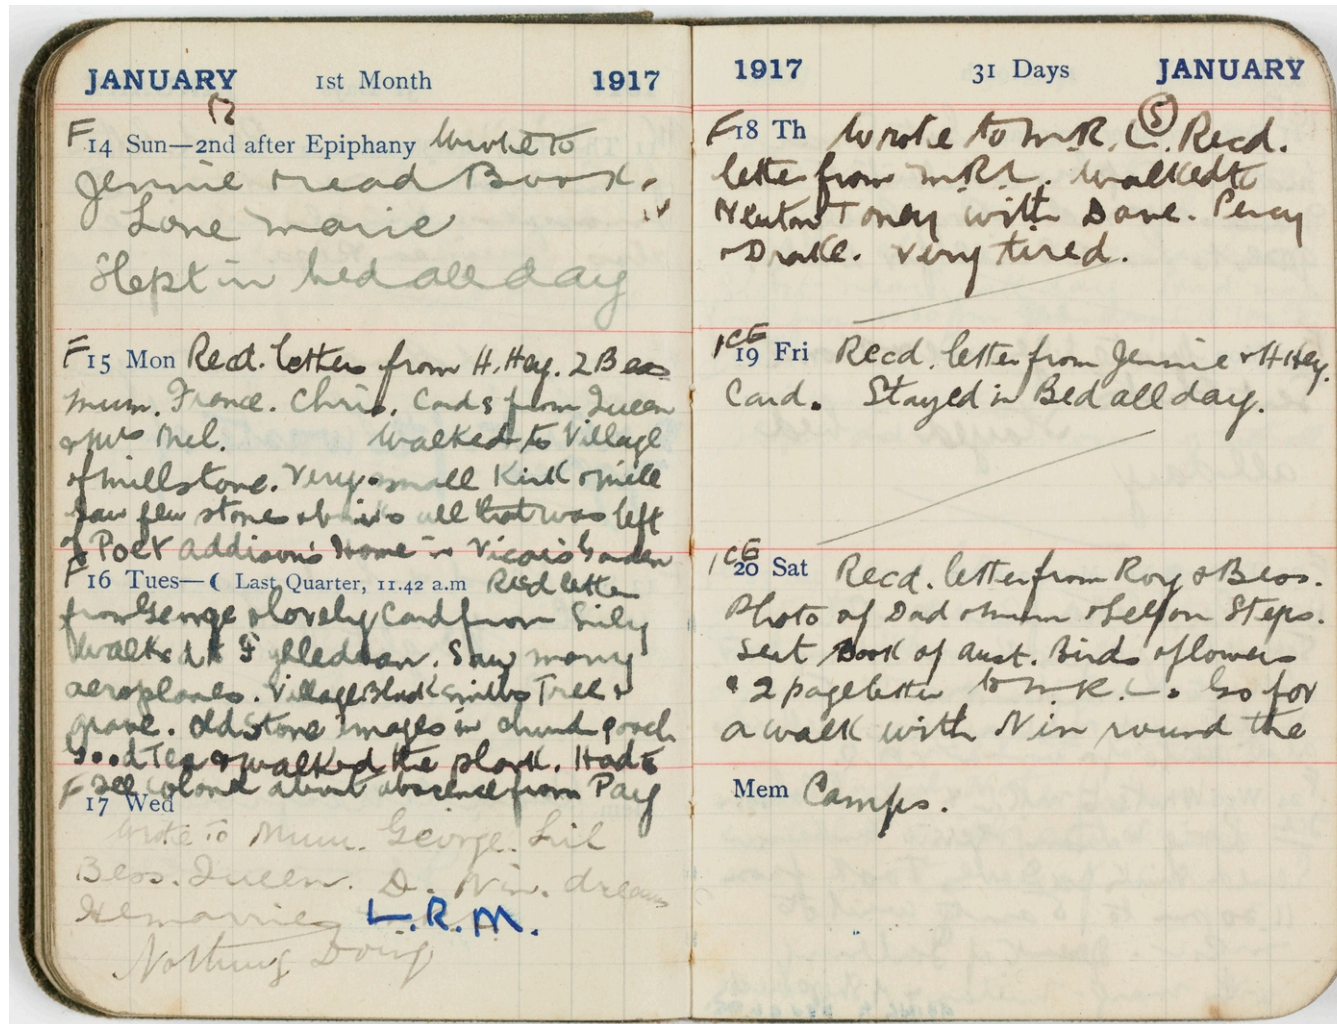 JANUARY 1st Month 1917
12
F 14 Sun—2nd after Epiphany Wrote to
Jennie & read Book.
Love marie
Slept in bed all day
F 15 Mon Recd. letters from H. Hey. 2 Bess
Mum. France. Chris. Cards from Queen
& Mrs Mel. Walked to Village
of Millstone. Very small Kirk & mill
Saw few stones & bricks all that was left
of Poet Addison's Home in Vicar's Garden
F 16 Tues—☾ Last Quarter, 11.42 a.m Recd letter
from George & lovely Card from
Walked to. Saw many
aeroplanes. Village Blacksmiths Tree &
grave. Old Stone Images in church porch
Good Tea & walked the plank. Had to
F see colonel about absence from Pay
17 Wed
Wrote to Mum. George. Lil
Bess. Queen. D. Nin. dream
He marries L.R.M.
Nothing Doing
1917 31 Days JANUARY
F 18 Th Wrote to M.R.L. (5) Recd.
letter from M.R.L. Walked to
Newton Toney with Dave. Percy
& Drake. Very tired.
ICE
19 Fri Recd. letter from Jennie & H Hey.
Card. Stayed in Bed all day.
ICE
20 Sat Recd. letter from Roy & Bess.
Photo of Dad & Mum & self on Steps.
Sent Book of Aust. Birds & flowers
& 2 page letter to M.R.L. Go for
a walk with Nin round the
Mem Camps.